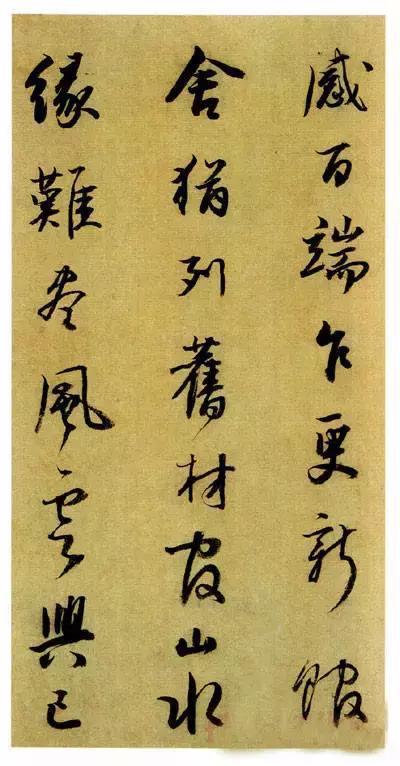 感百端乍更新館
舍猶列舊材官山水
緣難盡風雲興已